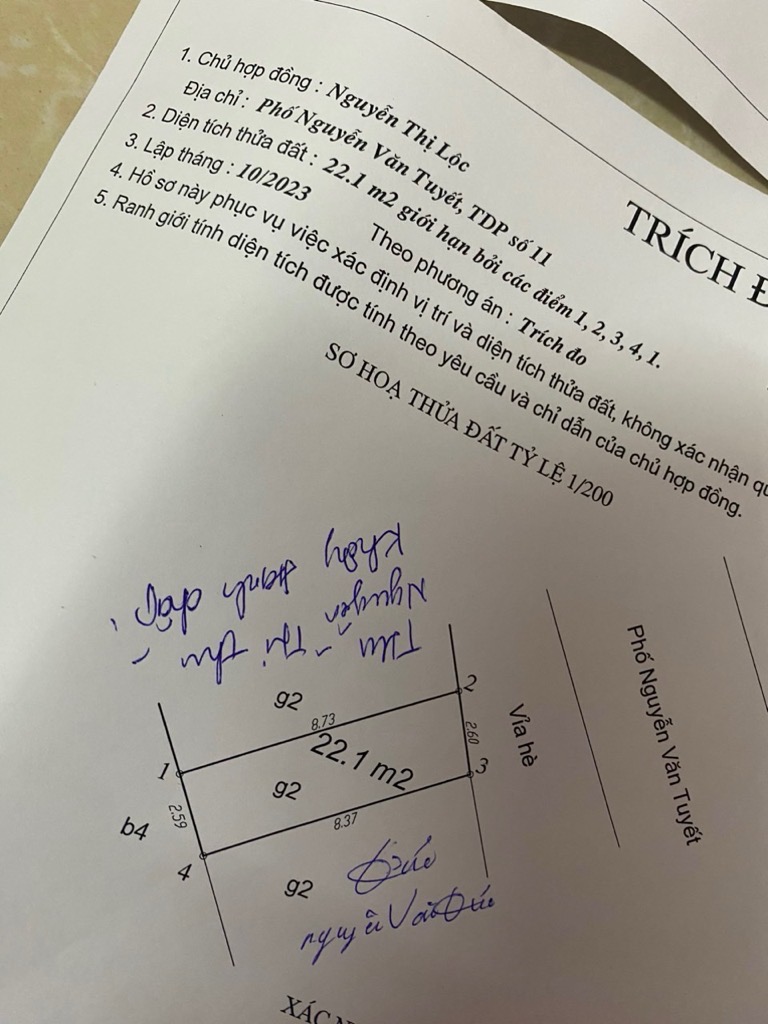 TRÍCH Đ
1. Chủ hợp đồng : Nguyễn Thị Lộc
Địa chỉ : Phố Nguyễn Văn Tuyết, TDP số 11
2. Diện tích thửa đất : 22.1 m2 giới hạn bởi các điểm 1, 2, 3, 4, 1.
3. Lập tháng : 10/2023 Theo phương án : Trích đo
4. Hồ sơ này phục vụ việc xác định vị trí và diện tích thửa đất, không xác nhận qu
5. Ranh giới tính diện tích được tính theo yêu cầu và chỉ dẫn của chủ hợp đồng.
SƠ HOẠ THỬA ĐẤT TỶ LỆ 1/200
Không tranh chấp
Nguyễn Thị Thu
Thu
g2
1
8.73
2
22.1 m2
2.60
Vỉa hè
Phố Nguyễn Văn Tuyết
2.59
g2
3
b4
8.37
4
g2
Đức
nguyễn Văn Đức
XÁC N